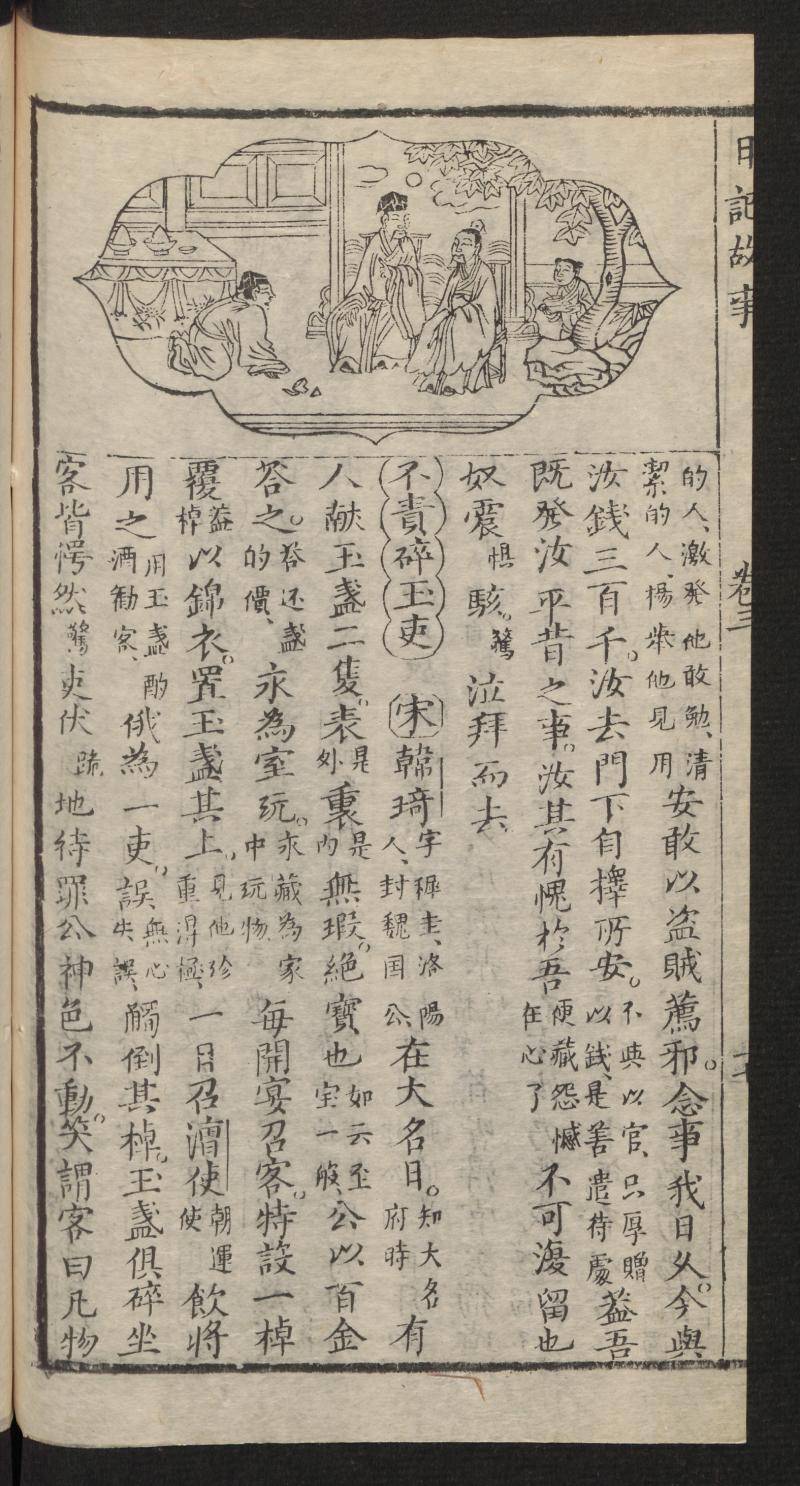 日記故事 卷三
的人、激發他敢勉、清潔的人、揚举他見用安敢以盜賊薦邪。念事我日久。今與
汝錢三百千。汝去門下自擇所安。不與以官、只厚贈以錢、是善遣待處蓋吾
既發汝平昔之事。汝其有愧於吾便藏怨憾在心了不可復留也
奴震惧駭。驚泣拜而去
不責碎玉吏 宋韓琦字稚圭、洛陽人、封魏国公在大名日。知大名府時有
人献玉盞二隻。表是外裏是内無瑕。絕寶也如云至宝一般、公以百金
答之。答还盞的價、永為室玩。永藏為家中玩物每開宴召客。特設一棹
覆蓋棹以錦衣。置玉盞其上。見他珍重淂極、一日召漕使朝運使飲將
用之用玉盞酌酒勸客、俄為一吏。誤無心失誤、觸倒其棹。玉盞俱碎坐
客皆愕然驚吏伏跪地待罪公神色不動。笑謂客曰凡物